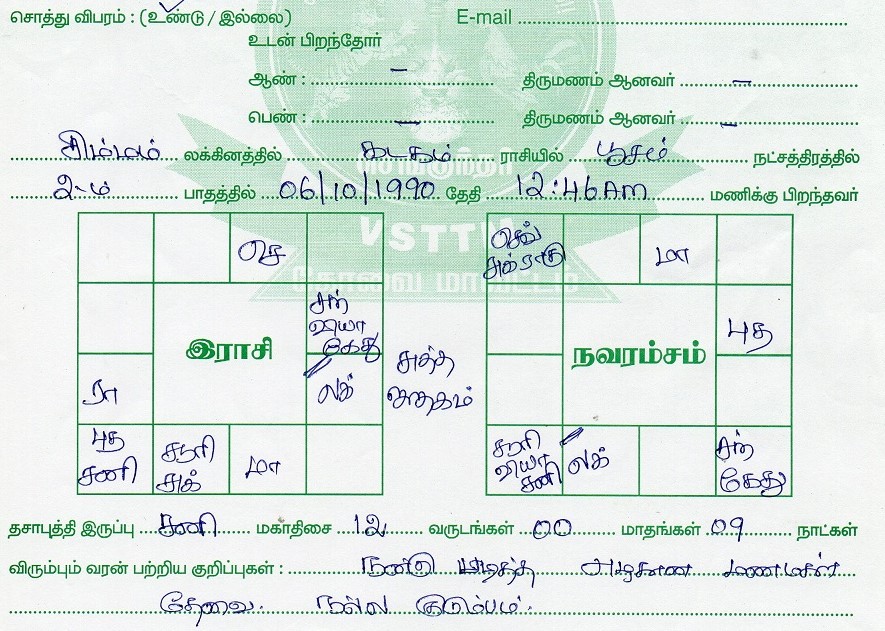 சொத்து விபரம் : (உண்டு / இல்லை) E-mail
உடன் பிறந்தோர்
ஆண் : – திருமணம் ஆனவர் –
பெண் : – திருமணம் ஆனவர் –
சிம்மம் லக்கினத்தில் கடகம் ராசியில் பூசம் நட்சத்திரத்தில்
2-ம் பாதத்தில் 06/10/1990 தேதி 12:46AM மணிக்கு பிறந்தவர்
VSTT
கோவை மாவட்டம்
செ
சந்
வியா
கேது
இராசி
ரா
லக்
சுத்த
ஜாதகம்
புத
சனி
சூரி
சுக்
மா
செவ்
சுக் ராகு
மா
புத
நவரம்சம்
சூரி
வியா
சனி
லக்
சந்
கேது
தசாபுத்தி இருப்பு சனி மகாதிசை 12 வருடங்கள் 00 மாதங்கள் 09 நாட்கள்
விரும்பும் வரன் பற்றிய குறிப்புகள் : நன்கு படித்த அழகான மணமகன்
தேவை. நல்ல குடும்பம்.